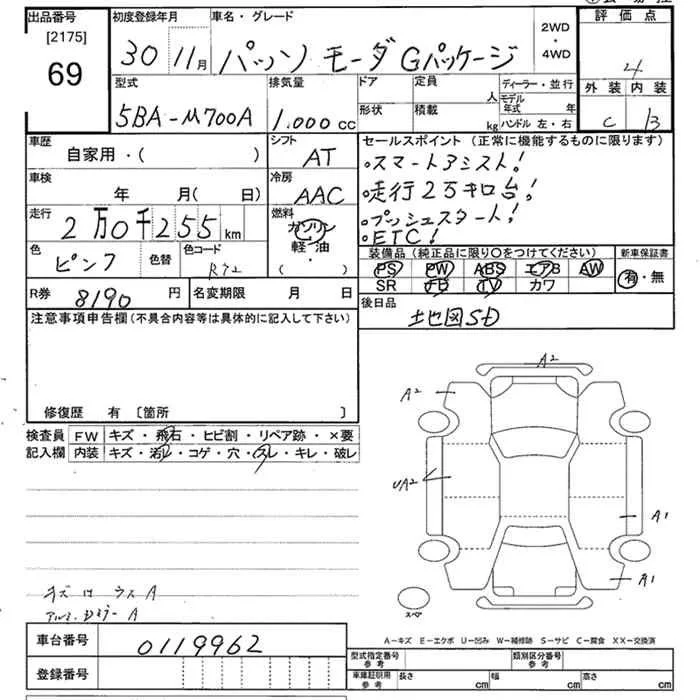 出品番号
[2175]
69
初度登録年月
30 11月
車名・グレード
パッソ モーダ Gパッケージ
2WD
・
4WD
評価点
4
外装 内装
C B
型式
5BA-M700A
排気量
1.000 cc
ドア
形状
定員
人
積載
kg
ディーラー・並行
モデル
年式 年
ハンドル 左・右
車歴
自家用・( )
シフト
AT
車検
年 月( 日)
冷房
AAC
走行
2万0千255 km
燃料
ガソリン
軽・油
( )
色
ピンク
色替
色コード
R72
セールスポイント (正常に機能するものに限ります)
・スマートアシスト!
・走行2万キロ台!
・プッシュスタート!
・ETC!
装備品 (純正品に限り○をつけてください)
PS PW ABS エアB AW
SR ナビ TV カワ
新車保証書
有・無
R券
8190 円
名変期限 月 日
後日品
地図SD
注意事項申告欄(不具合内容等は具体的に記入して下さい)
修復歴 有 〔箇所 〕
検査員
記入欄
FW キズ・飛石・ヒビ割・リペア跡・×要
内装 キズ・汚レ・コゲ・穴・スレ・キレ・破レ
A2
A2
UA2
A1
A1
スペア
キズ ウス A
A
A-キズ E-エクボ U-凹み W-補修跡 S-サビ C-腐食 XX-交換済
車台番号
0119962
登録番号
型式指定番号
参考
類別区分番号
参考
車庫証明用
参考
長さ cm
幅 cm
高さ cm